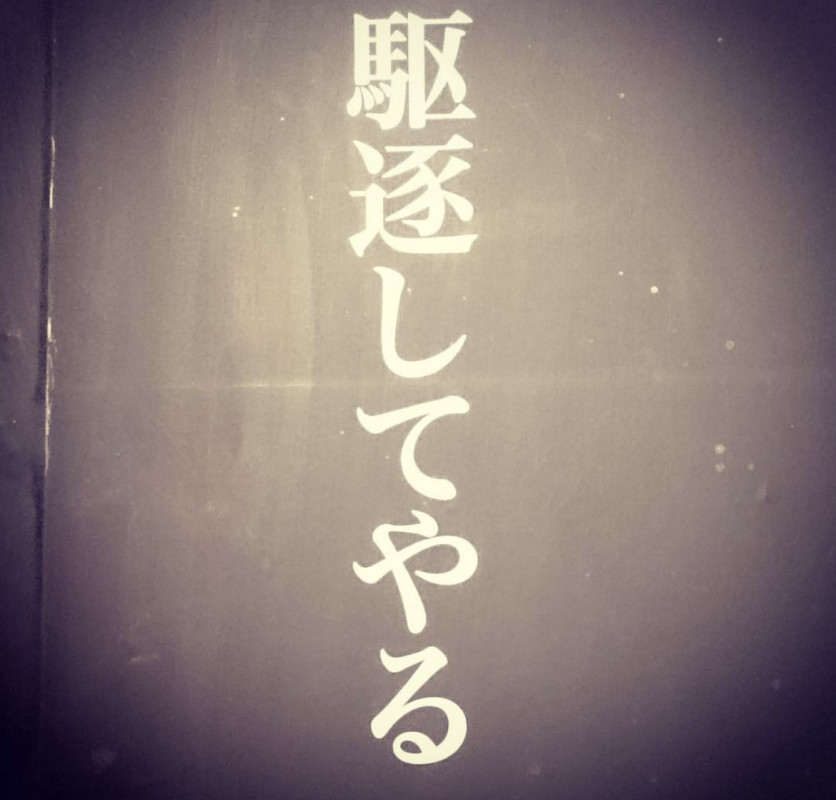 駆逐してやる